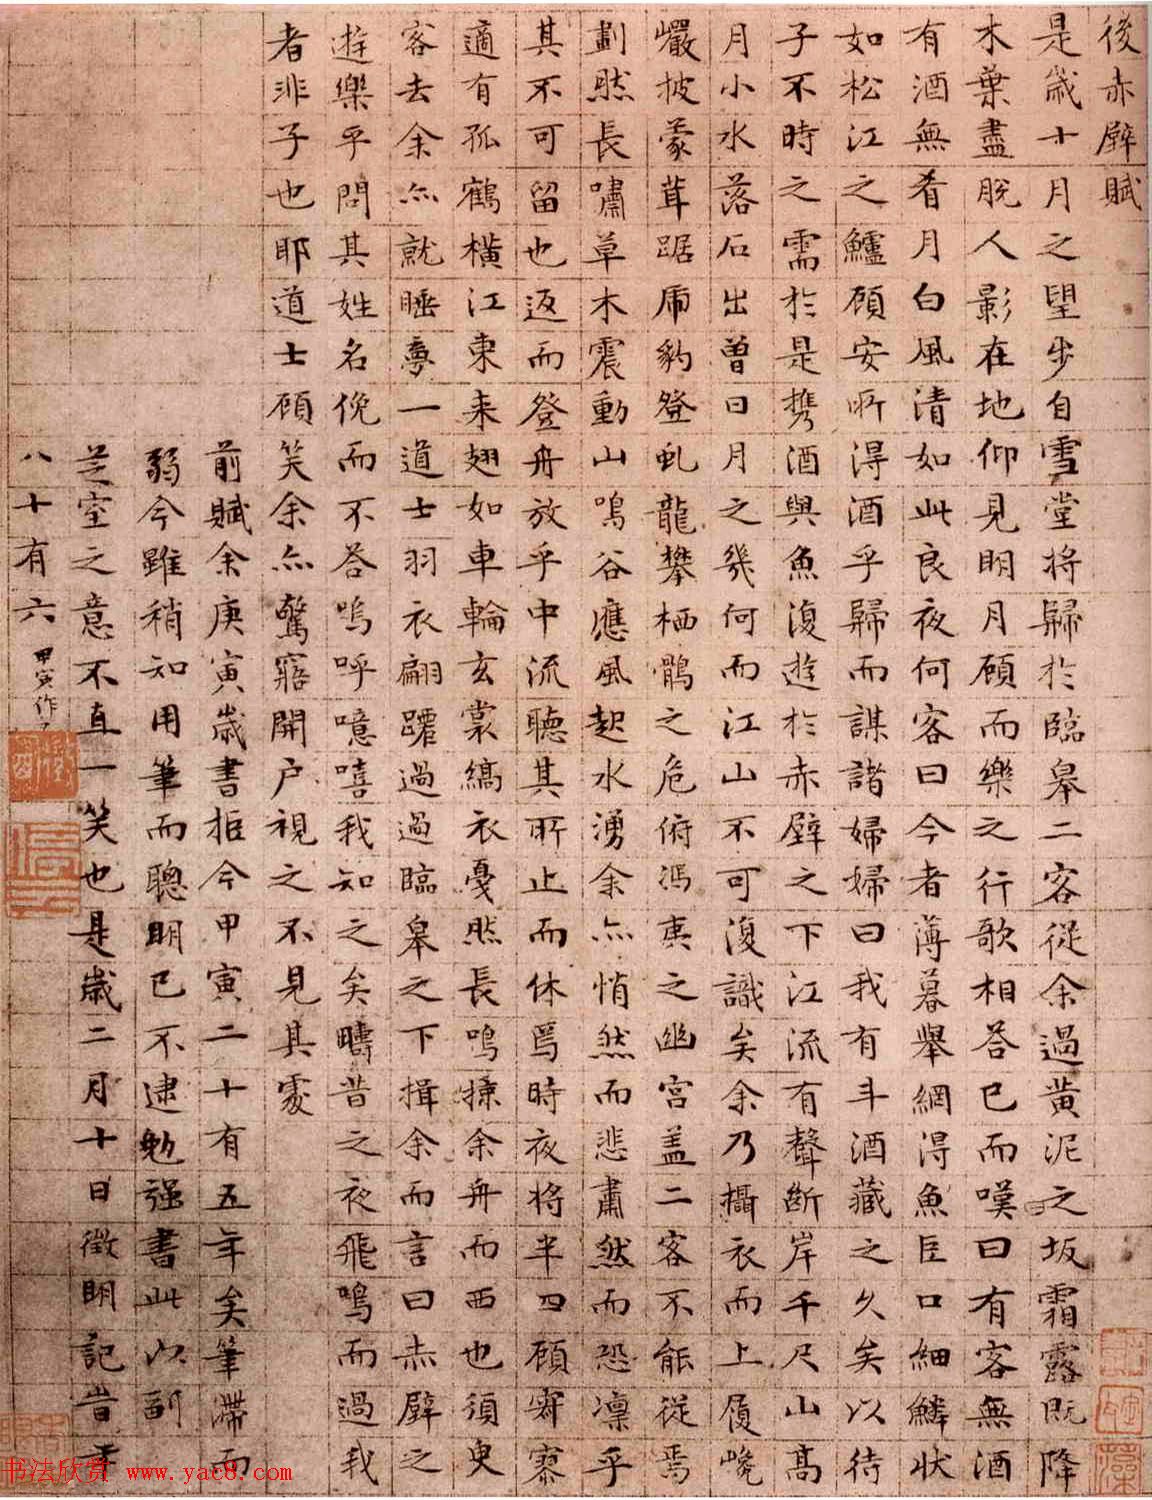 後赤壁賦
是歲十月之望步自雪堂將歸於臨皋二客從余過黃泥之坂霜露既降
木葉盡脫人影在地仰見明月顧而樂之行歌相答已而嘆曰有客無酒
有酒無肴月白風清如此良夜何客曰今者薄暮舉網得魚巨口細鱗狀
如松江之鱸顧安所得酒乎歸而謀諸婦婦曰我有斗酒藏之久矣以待
子不時之需於是攜酒與魚復遊於赤壁之下江流有聲斷岸千尺山高
月小水落石出曾日月之幾何而江山不可復識矣余乃攝衣而上履巉
巖披蒙茸踞虎豹登虬龍攀栖鶻之危俯馮夷之幽宮蓋二客不能從焉
劃然長嘯草木震動山鳴谷應風起水湧余亦悄然而悲肅然而恐凜乎
其不可留也返而登舟放乎中流聽其所止而休焉時夜將半四顧寂寥
適有孤鶴橫江東來翅如車輪玄裳縞衣戛然長鳴掠余舟而西也須臾
客去余亦就睡夢一道士羽衣翩躚過過臨皋之下揖余而言曰赤壁之
遊樂乎問其姓名俛而不答嗚呼噫嘻我知之矣疇昔之夜飛鳴而過我
者非子也耶道士顧笑余亦驚寤開戶視之不見其處
前賦余庚寅歲書拒今甲寅二十有五年矣筆滯而
弱今雖稍知用筆而聰明已不逮勉強書此以副
芝室之意不直一笑也是歲二月十日徵明記旹年
八十有六
甲寅作
书法欣赏 www.yac8.com